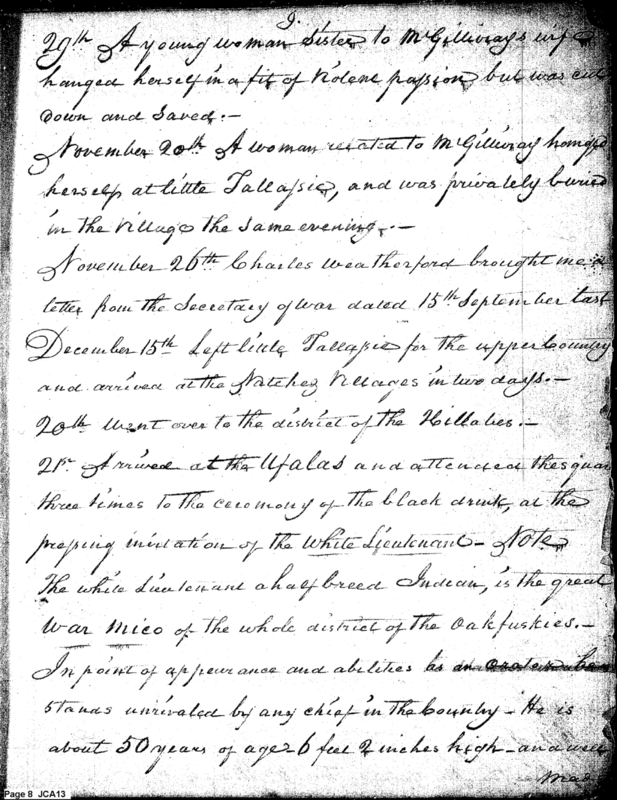 9.
29th A young woman Sister to McGillivrays wife
hanged herself in a fit of Violent passion but was cut
down and Saved.—
November 20th A woman related to McGillivray hanged
herself at little Tallassie, and was privately buried
in the Village the Same evening.—
November 26th Charles Weatherford brought me a
letter from the Secretary of war dated 15th September last
December 15th Left little Tallassie for the upper Country
and arrived at the Natchez Villages in two days.—
20th Went over to the district of the Hillabes.—
21st Arrived at the Ufalas and attended the squar
three times to the ceremony of the black drink, at the
pressing invitation of the White Lieutenant— Note
The white Lieutenant a half breed Indian, is the great
War Mico of the whole district of the Oakfuskies.—
In point of appearance and abilities as an orator he
stands unrivaled by any chief in the Country— He is
about 50 years of age 6 feet 2 inches high—and well
Mad
Page 8 JCA13